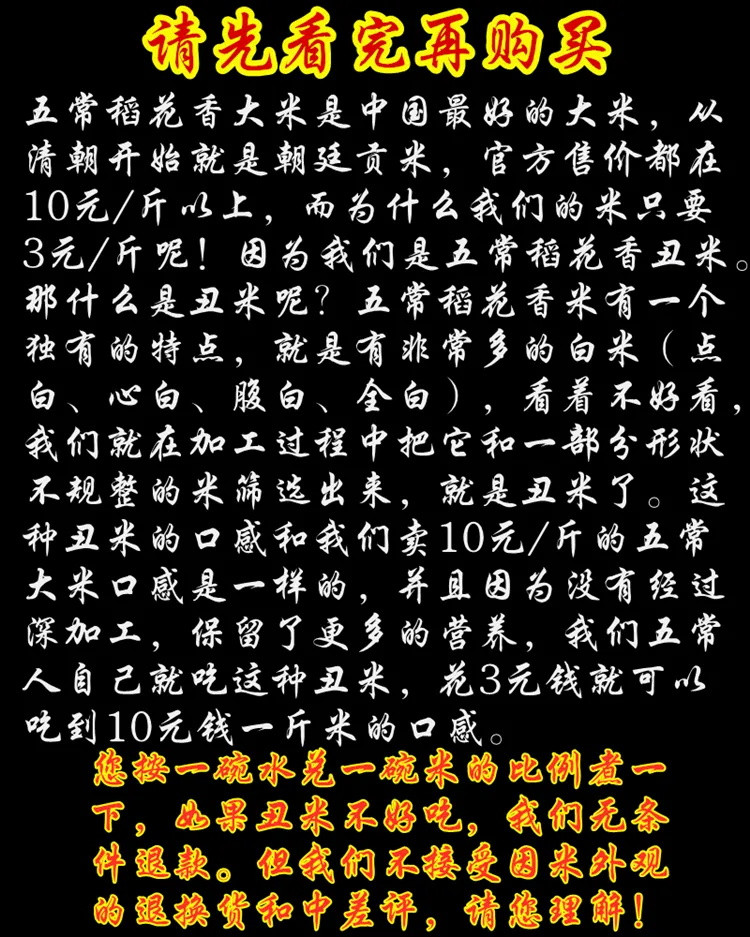 请先看完再购买
五常稻花香大米是中国最好的大米，从
清朝开始就是朝廷贡米，官方售价都在
10元/斤以上，而为什么我们的米只要
3元/斤呢！因为我们是五常稻花香丑米。
那什么是丑米呢？五常稻花香米有一个
独有的特点，就是有非常多的白米（点
白、心白、腹白、全白），看着不好看，
我们就在加工过程中把它和一部分形状
不规整的米筛选出来，就是丑米了。这
种丑米的口感和我们卖10元/斤的五常
大米口感是一样的，并且因为没有经过
深加工，保留了更多的营养，我们五常
人自己就吃这种丑米，花3元钱就可以
吃到10元钱一斤米的口感。
您按一碗水兑一碗米的比例煮一
下，如果丑米不好吃，我们无条
件退款。但我们不接受因米外观
的退换货和中差评，请您理解！